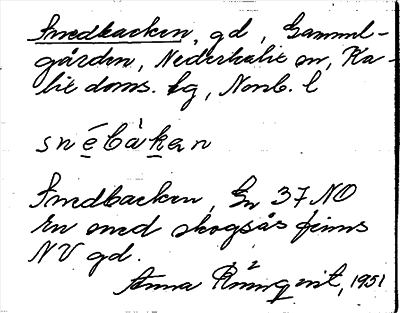 Smedbacken, gd, Gammel-
gården, Nederkalix sn, Ka-
lix doms. lg, Norrb. l
snébàkan
Smedbacken, En 37 NO
En med skogsås finns
NV gd.
Anna Rönnqvist, 1951